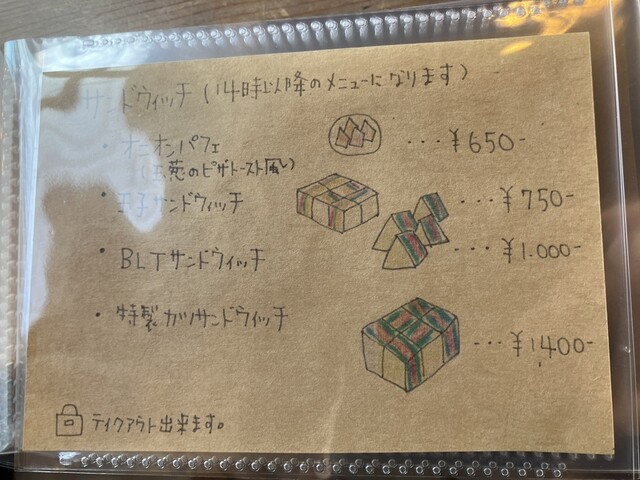 サンドウィッチ (14時以降のメニューになります)
・オニオンパフェ ・・・¥650-
(玉葱のピザトースト風)
・玉子サンドウィッチ ・・・¥750-
・BLTサンドウィッチ ・・・¥1.000-
・特製カツサンドウィッチ ・・・¥1,400-
テイクアウト出来ます。